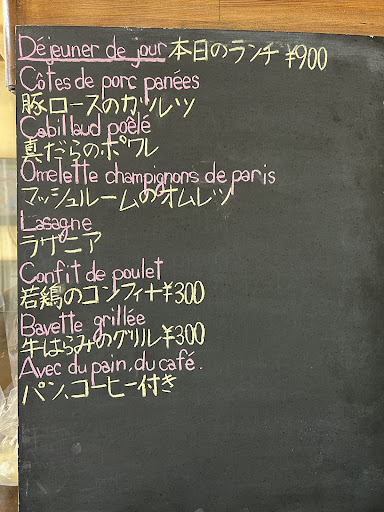 Déjeuner de jour 本日のランチ ¥900
Côtes de porc panées
豚ロースのカツレツ
Cabillaud poêlé
真だらのポワレ
Omelette champignons de paris
マッシュルームのオムレツ
Lasagne
ラザニア
Confit de poulet
若鶏のコンフィ+¥300
Bavette grillée
牛はらみのグリル¥300
Avec du pain, du café.
パン、コーヒー付き